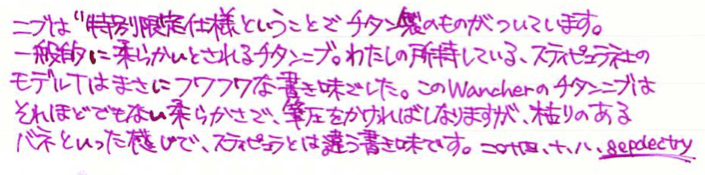 ニブは"特別限定仕様ということでチタン製のものがついています。
一般的に柔らかいとされるチタンニブ。わたしの所持している、スティピュラ社の
モデルTはまさにフワフワな書き味でした。このWancherのチタンニブは
それほどでもない柔らかさで、筆圧をかければしなりますが、粘りのある
バネといった感じで、スティピュラとは違う書き味です。二〇廿四、十、八、gepdectry